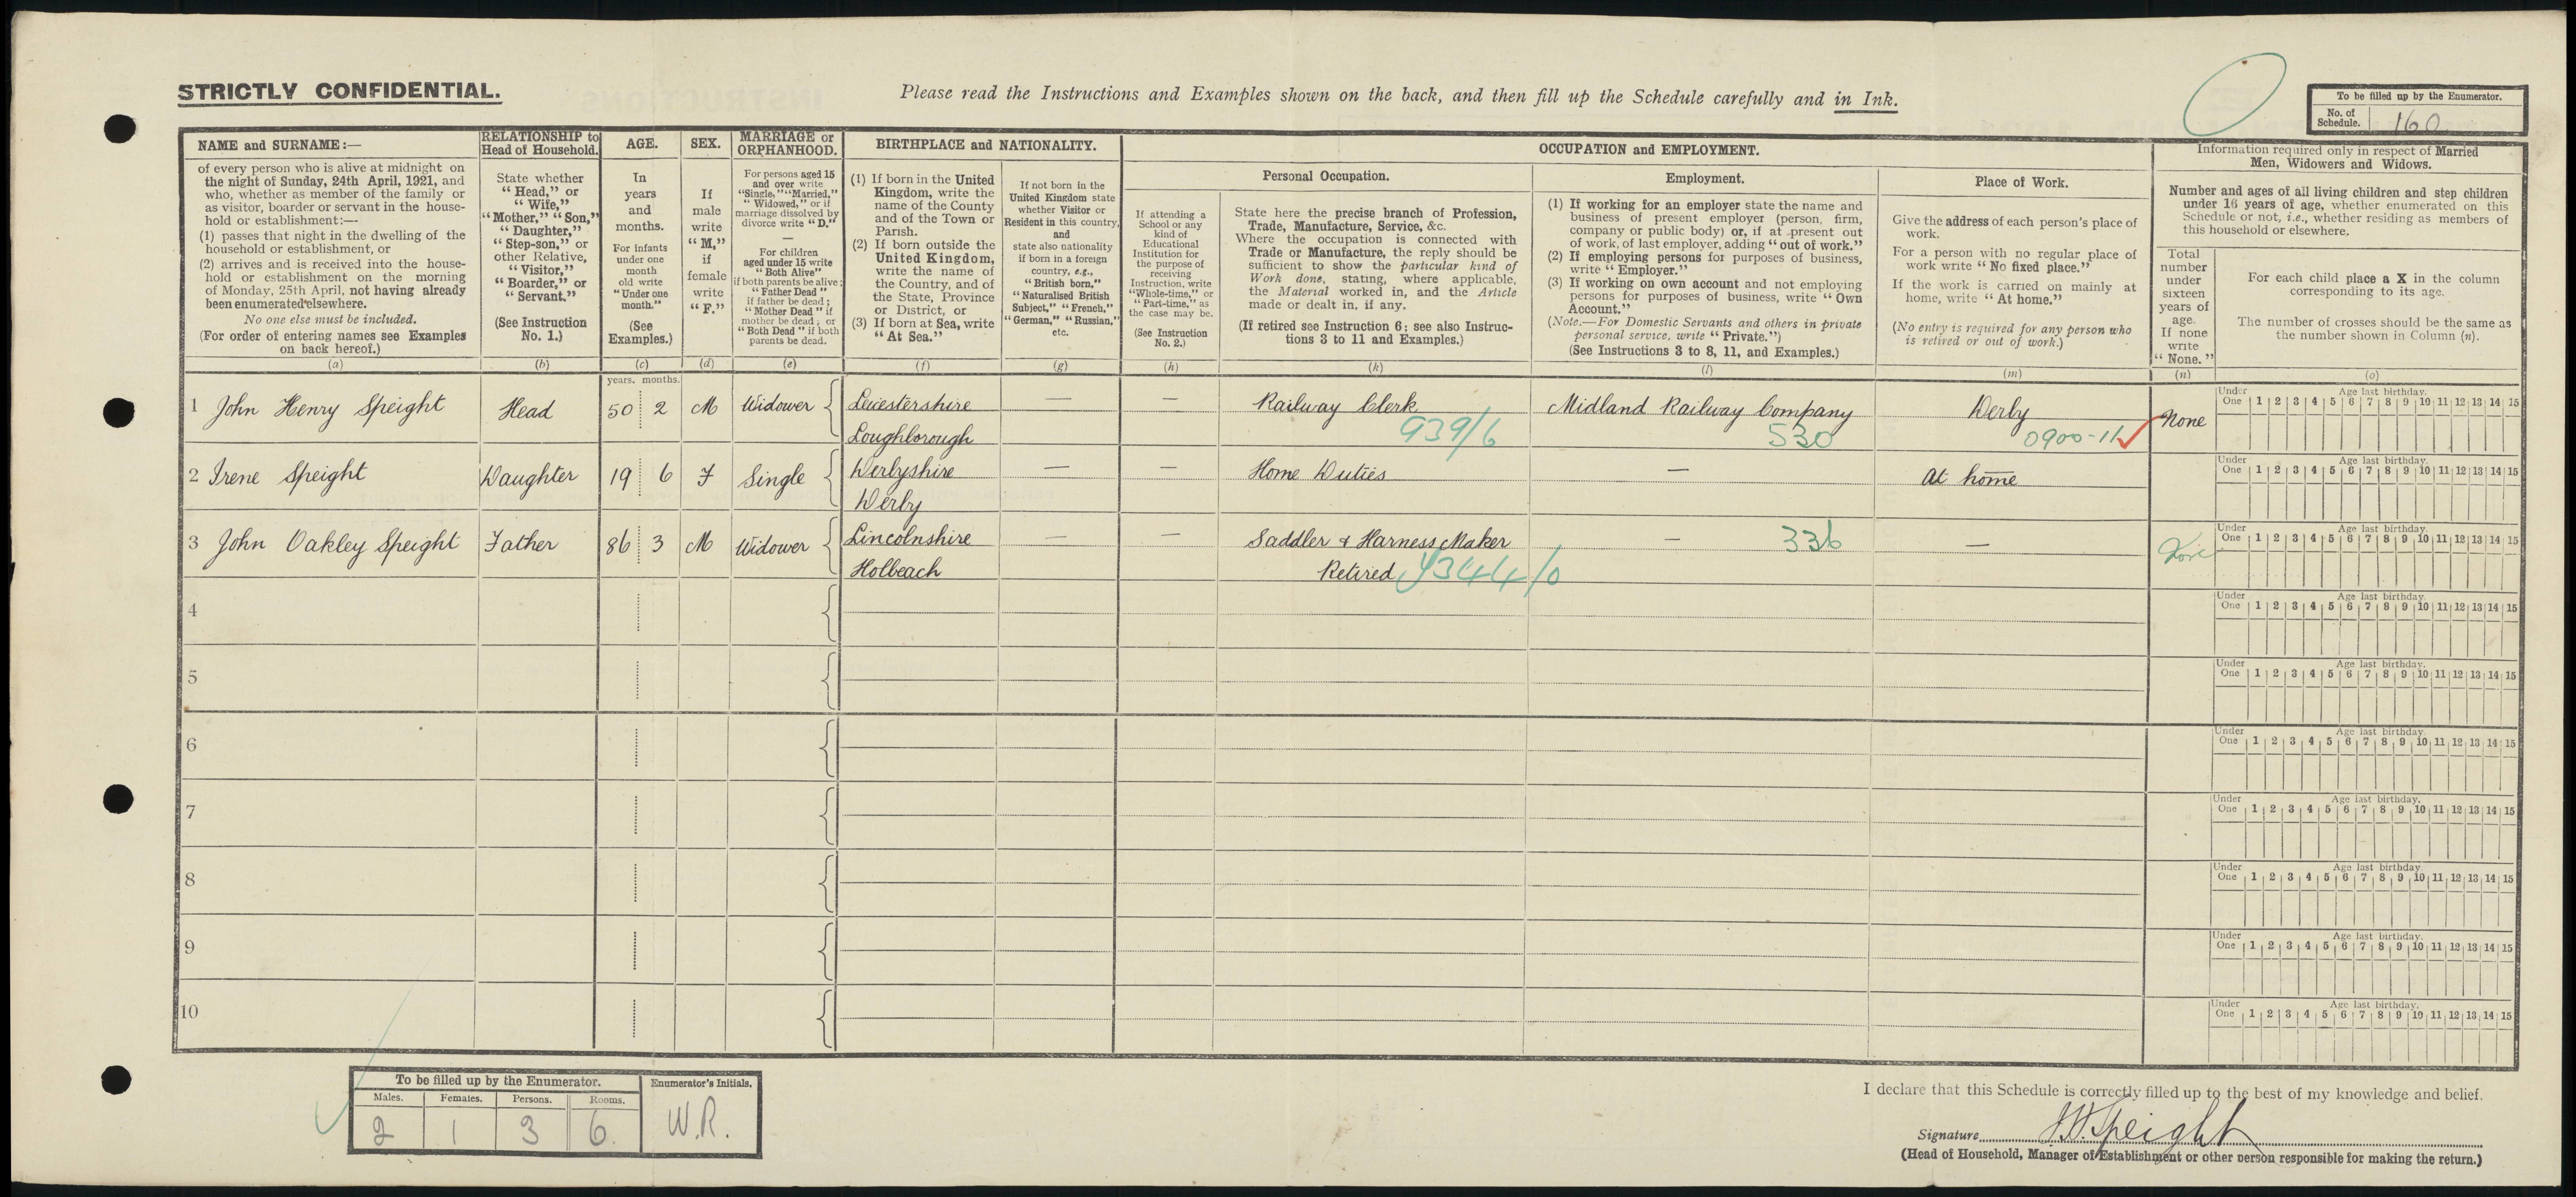 STRICTLY CONFIDENTIAL.
Please read the Instructions and Examples shown on the back, and then fill up the Schedule carefully and in Ink.
To be filled up by the Enumerator.
No. of Schedule. 160
NAME and SURNAME:—
of every person who is alive at midnight on
the night of Sunday, 24th April, 1921, and
who, whether as member of the family or
as visitor, boarder or servant in the house-
hold or establishment:—
(1) passes that night in the dwelling of the
household or establishment, or
(2) arrives and is received into the house-
hold or establishment on the morning
of Monday, 25th April, not having already
been enumerated elsewhere.
No one else must be included.
(For order of entering names see Examples
on back hereof.)
(a)
RELATIONSHIP to
Head of Household.
State whether
"Head," or
"Wife,"
"Mother," "Son,"
"Daughter,"
"Step-son," or
other Relative,
"Visitor,"
"Boarder," or
"Servant."
(See Instruction
No. 1.)
(b)
AGE.
In
years
and
months.
For infants
under one
month
old write
"Under one
month."
(See
Examples.)
(c)
SEX.
If
male
write
"M,"
if
female
write
"F."
(d)
MARRIAGE or
ORPHANHOOD.
For persons aged 15
and over write
"Single," "Married,"
"Widowed," or if
marriage dissolved by
divorce write "D."
—
For children
aged under 15 write
"Both Alive"
if both parents be alive;
"Father Dead"
if father be dead;
"Mother Dead" if
mother be dead; or
"Both Dead" if both
parents be dead.
(e)
BIRTHPLACE and NATIONALITY.
(1) If born in the United
Kingdom, write the
name of the County
and of the Town or
Parish.
(2) If born outside the
United Kingdom,
write the name of
the Country, and of
the State, Province
or District, or
(3) If born at Sea, write
"At Sea."
(f)
If not born in the
United Kingdom state
whether Visitor or
Resident in this country,
and
state also nationality
if born in a foreign
country, e.g.,
"British born,"
"Naturalised British
Subject," "French,"
"German," "Russian,"
etc.
(g)
OCCUPATION and EMPLOYMENT.
If attending a
School or any
kind of
Educational
Institution for
the purpose of
receiving
Instruction, write
"Whole-time," or
"Part-time," as
the case may be.
(See Instruction
No. 2.)
(h)
Personal Occupation.
State here the precise branch of Profession,
Trade, Manufacture, Service, &c.
Where the occupation is connected with
Trade or Manufacture, the reply should be
sufficient to show the particular kind of
Work done, stating, where applicable,
the Material worked in, and the Article
made or dealt in, if any.
(If retired see Instruction 6; see also Instruc-
tions 3 to 11 and Examples.)
(k)
Employment.
(1) If working for an employer state the name and
business of present employer (person, firm,
company or public body) or, if at present out
of work, of last employer, adding "out of work."
(2) If employing persons for purposes of business,
write "Employer."
(3) If working on own account and not employing
persons for purposes of business, write "Own
Account."
(Note.—For Domestic Servants and others in private
personal service, write "Private.")
(See Instructions 3 to 8, 11, and Examples.)
(l)
Place of Work.
Give the address of each person's place of
work.
For a person with no regular place of
work write "No fixed place."
If the work is carried on mainly at
home, write "At home."
(No entry is required for any person who
is retired or out of work.)
(m)
Information required only in respect of Married
Men, Widowers and Widows.
Number and ages of all living children and step children
under 16 years of age, whether enumerated on this
Schedule or not, i.e., whether residing as members of
this household or elsewhere.
Total
number
under
sixteen
years of
age.
If none
write
"None."
(n)
For each child place a X in the column
corresponding to its age.
The number of crosses should be the same as
the number shown in Column (n).
(o)
years. months.
1 John Henry Speight Head 50 2 M Widower Leicestershire — — Railway Clerk Midland Railway Company Derby None
Loughborough 939/6 530 0900-11
Under One Age last birthday. 1 2 3 4 5 6 7 8 9 10 11 12 13 14 15
2 Irene Speight Daughter 19 6 F Single Derbyshire — — Home Duties — At home
Derby
Under One Age last birthday. 1 2 3 4 5 6 7 8 9 10 11 12 13 14 15
3 John Oakley Speight Father 86 3 M Widower Lincolnshire — — Saddler & Harness Maker — 336 —
Holbeach Retired 344/0
Under One Age last birthday. 1 2 3 4 5 6 7 8 9 10 11 12 13 14 15
4 Under One Age last birthday. 1 2 3 4 5 6 7 8 9 10 11 12 13 14 15
5 Under One Age last birthday. 1 2 3 4 5 6 7 8 9 10 11 12 13 14 15
6 Under One Age last birthday. 1 2 3 4 5 6 7 8 9 10 11 12 13 14 15
7 Under One Age last birthday. 1 2 3 4 5 6 7 8 9 10 11 12 13 14 15
8 Under One Age last birthday. 1 2 3 4 5 6 7 8 9 10 11 12 13 14 15
9 Under One Age last birthday. 1 2 3 4 5 6 7 8 9 10 11 12 13 14 15
10 Under One Age last birthday. 1 2 3 4 5 6 7 8 9 10 11 12 13 14 15
To be filled up by the Enumerator. Enumerator's Initials.
Males. Females. Persons. Rooms.
2 1 3 6. W.R.
I declare that this Schedule is correctly filled up to the best of my knowledge and belief.
Signature J H Speight
(Head of Household, Manager of Establishment or other person responsible for making the return.)